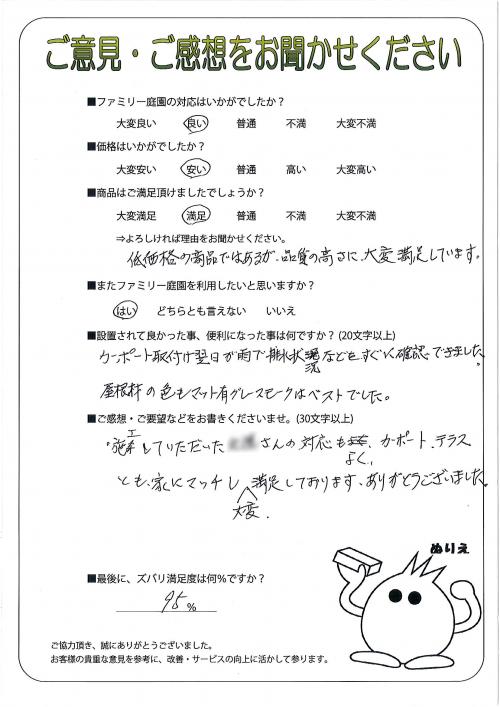 ご意見・ご感想をお聞かせください
■ファミリー庭園の対応はいかがでしたか？
大変良い 良い 普通 不満 大変不満
■価格はいかがでしたか？
大変安い 安い 普通 高い 大変高い
■商品はご満足頂けましたでしょうか？
大変満足 満足 普通 不満 大変不満
⇒よろしければ理由をお聞かせください。
低価格の商品ではあるが、品質の高さに、大変満足しています。
■またファミリー庭園を利用したいと思いますか？
はい どちらとも言えない いいえ
■設置されて良かった事、便利になった事は何ですか？(20文字以上)
カーポート取付け翌日が雨で排水状況などもすぐに確認できました。
屋根材の色もマット有グレスモークはベストでした。
■ご感想・ご要望などをお書きくださいませ。(30文字以上)
施工していただいた さんの対応もよく、カーポート、テラス
とも、家にマッチし、大変満足しております、ありがとうございました。
ぬりえ
■最後に、ズバリ満足度は何％ですか？
95 %
ご協力頂き、誠にありがとうございました。
お客様の貴重な意見を参考に、改善・サービスの向上に活かして参ります。